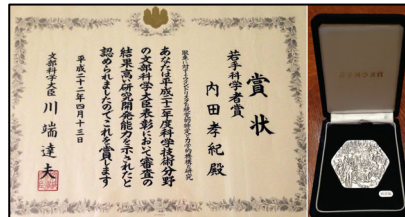 賞状
若手科学者賞
内田孝紀殿
あなたは平成二十二年度科学技術分野
の文部科学大臣表彰において審査の
結果高い研究開発能力を示されたと
認められましたのでこれを賞します
平成二十二年四月十三日
文部科学大臣 川端達夫